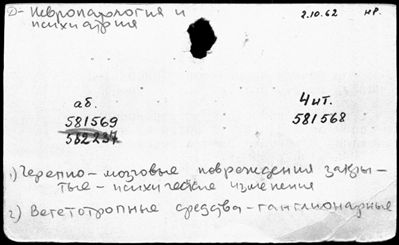 D- Невропатология и
психиатрия
2.10.62 нр.
аб. Чит.
581569 581568
562237
1) Черепно-мозговые повреждения закры-
тые - психические изменения
2) Вегетотропные средства - ганглионарные